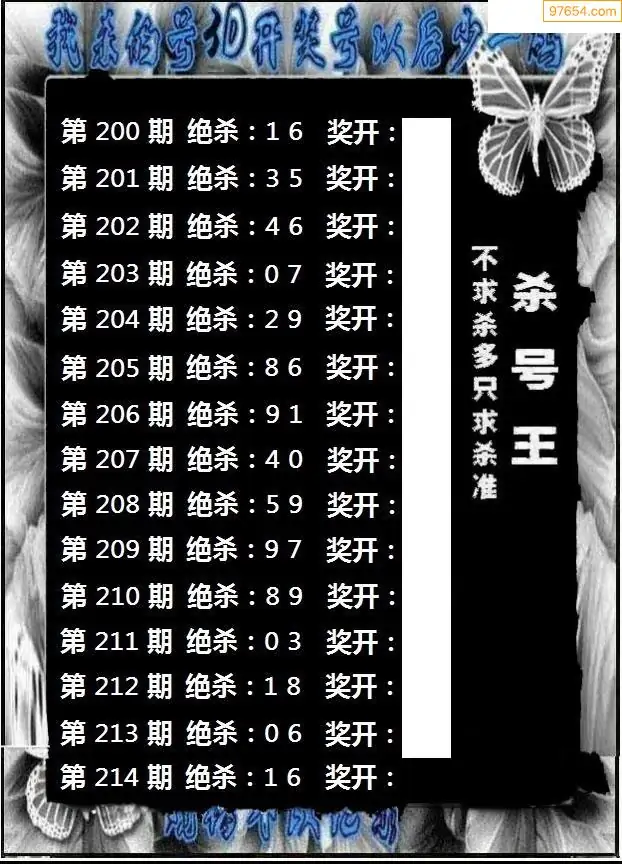 97654.com
我杀的号3D开奖号以后少一码
第 200 期 绝杀：1 6 奖开：
第 201 期 绝杀：3 5 奖开：
第 202 期 绝杀：4 6 奖开：
第 203 期 绝杀：0 7 奖开：
第 204 期 绝杀：2 9 奖开：
第 205 期 绝杀：8 6 奖开：
第 206 期 绝杀：9 1 奖开：
第 207 期 绝杀：4 0 奖开：
第 208 期 绝杀：5 9 奖开：
第 209 期 绝杀：9 7 奖开：
第 210 期 绝杀：8 9 奖开：
第 211 期 绝杀：0 3 奖开：
第 212 期 绝杀：1 8 奖开：
第 213 期 绝杀：0 6 奖开：
第 214 期 绝杀：1 6 奖开：
杀号王
不求杀多只求杀准